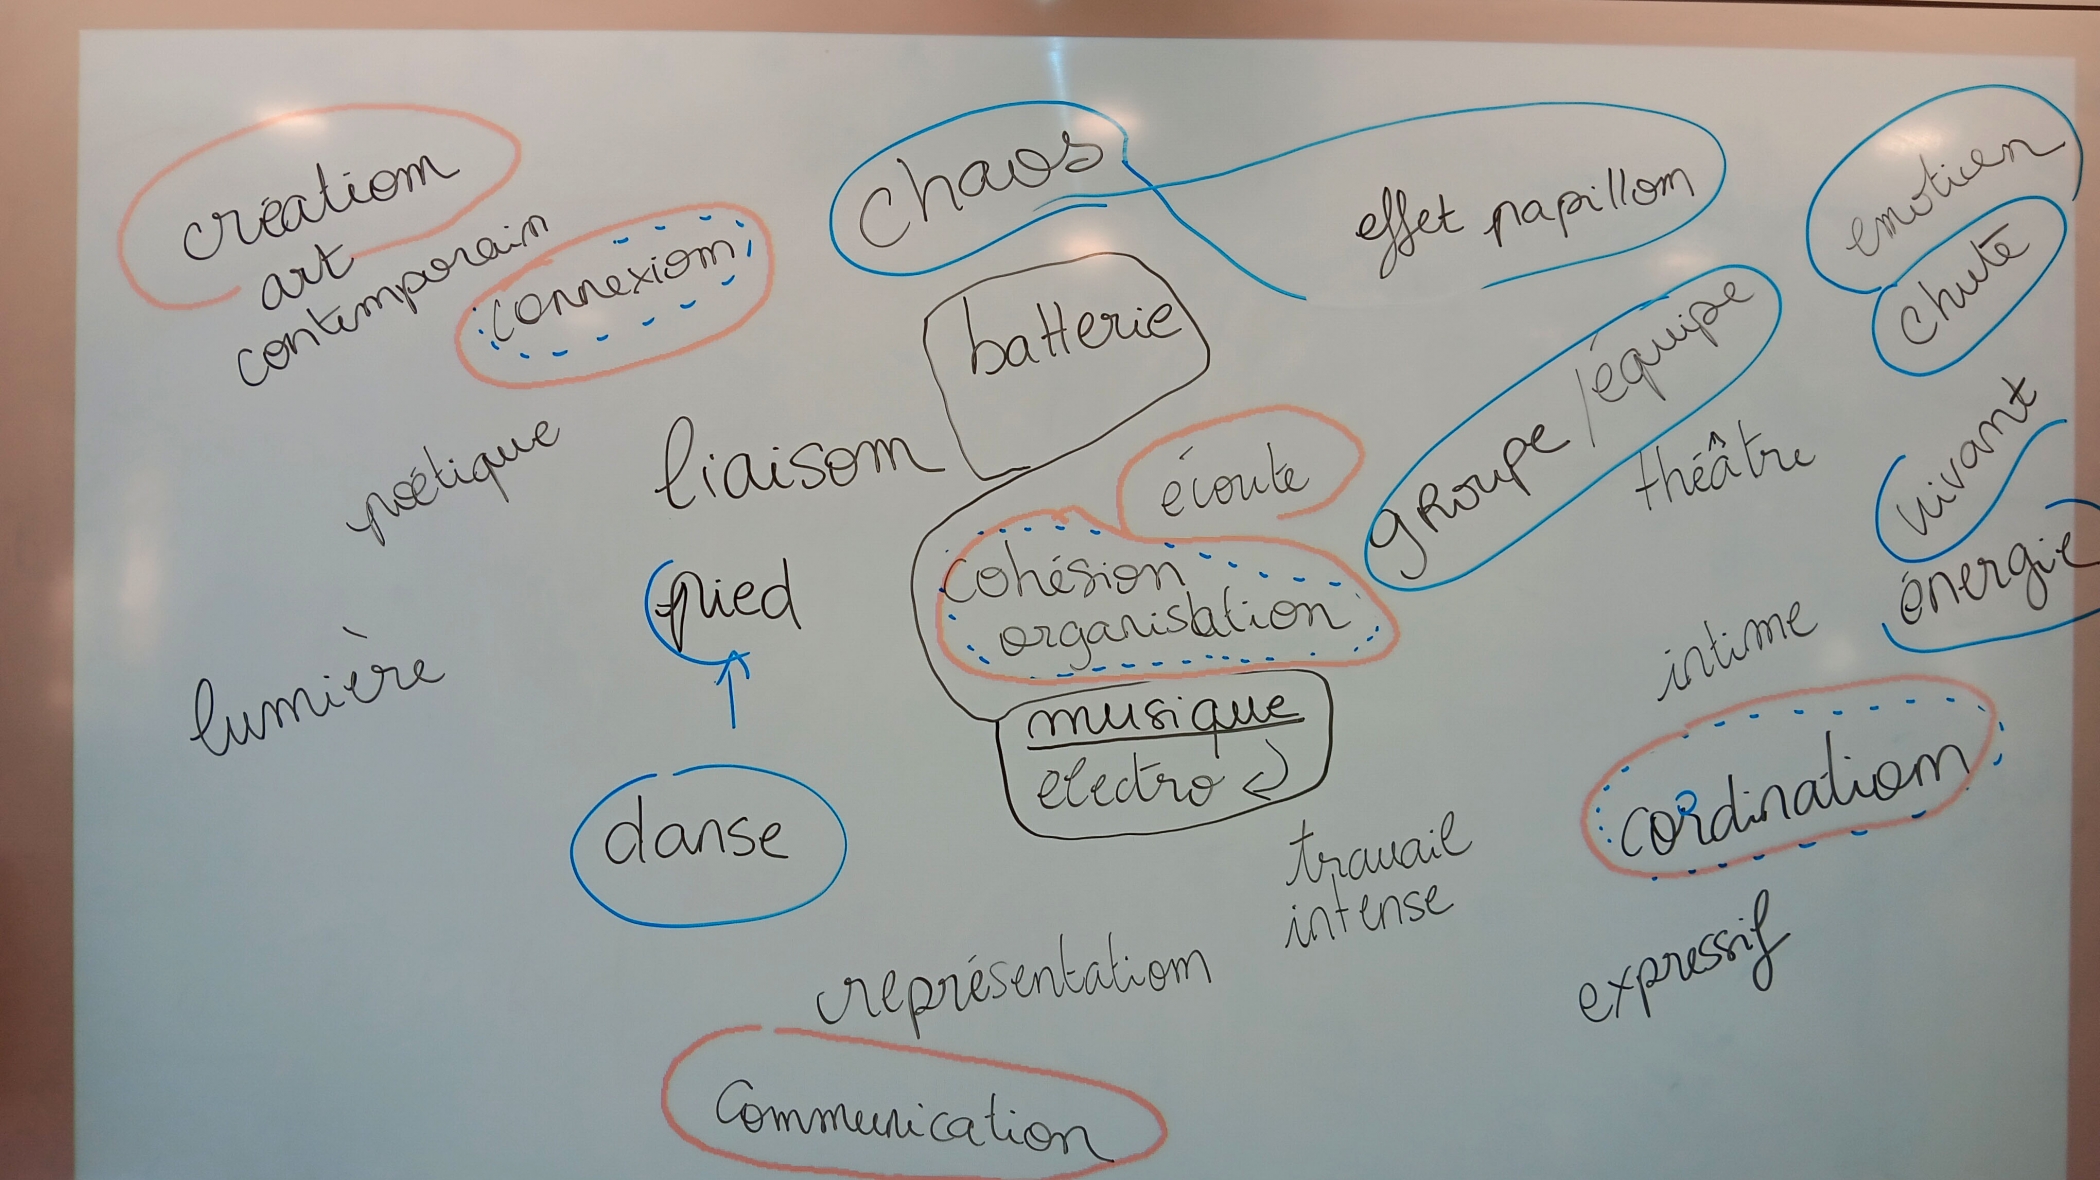 création
art
contemporain
connexion
chaos
effet papillon
emotion
chute
batterie
groupe / équipe
théâtre
vivant
énergie
poétique
liaison
écoute
pied
cohésion
organisation
lumière
musique
electro
intime
coordination
danse
travail
intense
représentation
expressif
Communication